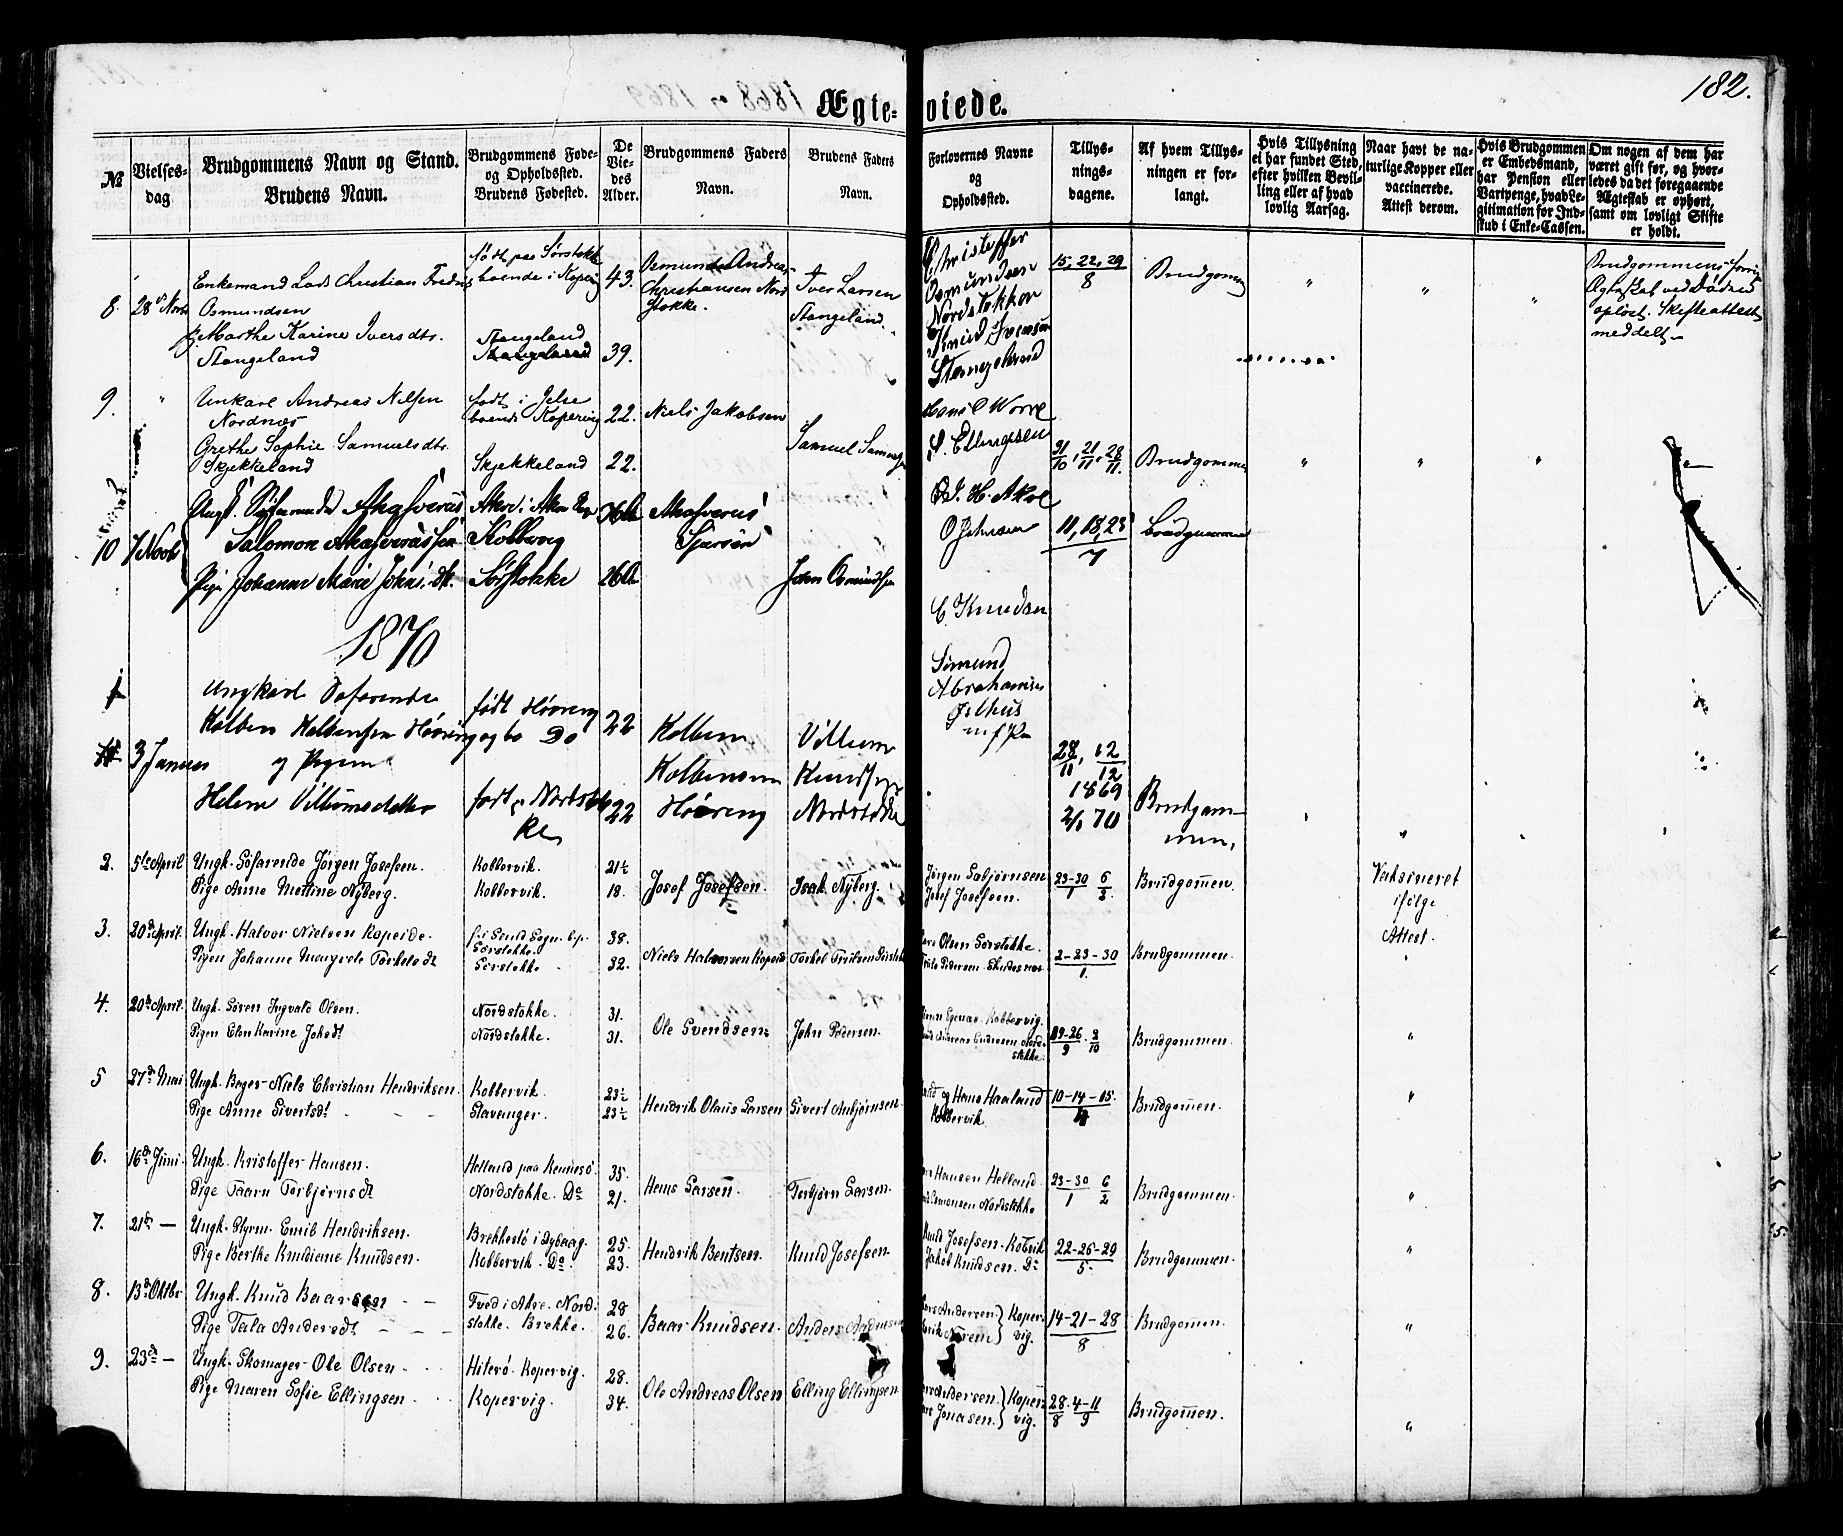 182.
Ægte-viede.
№
Vielses-dag
Brudgommens Navn og Stand.
Brudens Navn.
Brudgommens Føde- og Opholdssted.
Brudens Fødested.
De Viedes Alder.
Brudgommens Faders Navn.
Brudens Faders Navn.
Forlovernes Navne og Opholdssted.
Tillysningsdagene.
Af hvem Tillysningen er forlangt.
Hvis Tillysning ei har fundet Sted, efter hvilken Bevilling eller af hvad lovlig Aarsag.
Naar havt de naturlige Kopper eller vaccinerede. Attest derom.
Hvis Brudgommen er Embedsmand, har Pension eller Vartpenge, hvad Legitimation for Indskud i Enke-Cassen.
Om nogen af dem har været gift før, og hvorledes da det foregaaende Ægteskab er ophørt, samt om lovligt Skifte er holdt.
8. 28de Novb
Enkemand Lars Christian Fredrik
Osmundsen
p. Marthe Karine Iversdtr.
Stangeland
født paa Sørstokke
boende i Kopervig
Stangeland
43.
39.
Osmund Andreas
Christiansen Nord
Stokke.
Iver Larsen
Stangeland
Christoffer
Osmundsen
Nordstokke
Knud Iversen
Stangeland
15, 22, 29
8
Brudgom
" " "
Brudgommens forrige
Egteskab ved Døden
opløst. Skifteattest
meddelt
9. "
Unkarl Andreas Nilsen
Nordnæs
Grethe Sophie Samuelsdtr.
Skjekkeland
født i Jelse
boende Kopervig
Skjekkeland
22.
22.
Niels Jakobsen
Samuel
Hans
Ellingsen
31/10, 21/11, 28/11.
Brudgomme
" " "
10 7 Novb
Ungk. Søfarende Ahasverus
Salomon Ahasverussen
Pige Johanne Marie Johns dt.
Akre i Akre
Kobbervig
Sørstokke
26
Ahasverus
Sjursen
John Osmundsen
H. Akre
O Johnsen
11, 18, 25
7
Brudgommen
1870
1
3 Januar
Ungkarl Søfarende
Kolben Kolbensen Høvring
og Pigen
Helene Villumsdatter
født Høvring
og bo Do
født p. Nordstok
ke
22
22
Kolben
Kolbensen
Høvring
Villum
Knudsen
Nordstokke
C. Knudsen
Simund
Abrahamsen
28/11, 12/12
1869
2/1 70
Brudgom-
men,
2. 5te April
Ungk. Søfarende Jørgen Josefsen.
Pige Anne Mettine Nyberg.
Kobbervik.
Kobbervik.
21½
18.
Josef Josefsen.
Isak Nyberg.
Jørgen Gabjørnsen
Josef Josefsen.
23-30 6
1 2
Brudgommen.
Vaksineret
ifølge
Attest.
3. 20de April.
Ungk. Halvor Nielsen Kopeide.
Pigen Johanne Margrete Torkelsdt
Sørstokke.
Sørstokke.
38.
32.
Niels Halvorsen Kopeide
Torkel
Olsen Sørstokke.
Pedersen. Skudesnes
2-23-30
1.
Brudgommen.
"
4. 20de April.
Ungk. Søren Ingvald Olsen.
Pigen Elen Karine Johsdt
Nordstokke.
Nordstokke.
31.
31.
Ole Svendsen
John Pedersen.
Kobbervig.
Nord-
stokke
19-26 2
9 10
Brudgommen.
"
5 27de Mai
Ungk. Bager Niels Christian Hendriksen.
Pige Anne Sivertsdt
Kobbervik.
Stavanger.
23½
23½
Hendrik Olaus Larsen
Sivert Anbjørnsen.
og Hans Haaland
Kobbervik
10-14-15.
4
Brudgommen.
"
6. 16de Juni.
Ungk. Kristoffer Hansen.
Pige Taarn Torbjørnsdt
Helland paa Rennesø.
Nordstokke. Do
35.
21.
Hans Larsen.
Torbjørn Larsen.
Hansen Helland.
Nordstokke
23-30 6
1 2
Brudgommen.
"
7. 21de —
Ungk. Styrm. Emil Hendriksen.
Pige Berthe Knudiane Knudsen.
Brekkestø i Dybvaag.
Kobbervik. Do.
25.
23.
Hendrik Bentsen.
Knud Josefsen.
Knud Josefsen. Kobrvik
Jakob Knudsen. Do
22-26-29
5.
Brudgommen.
"
8. 13de Oktbr
Ungk. Knud Baarsen
Pige Tala Andersdt
Tved i Akre. Nord-
stokke. Brekke.
28
26.
Baar Knudsen.
Anders
Andersen. Koper-
Norem vig.
14-21-28
8
Brudgomen.
"
9. 23de —
Ungk. Skomager Ole Olsen
Pige Maren Sofie Ellingsen
Hiterø. Kopervig.
Kopervig.
28.
34.
Ole Andreas Olsen
Elling Ellingsen
Andersen. Koper-
Jonasen. vig.
28. 4-11
8 9
Brudgommen.
"